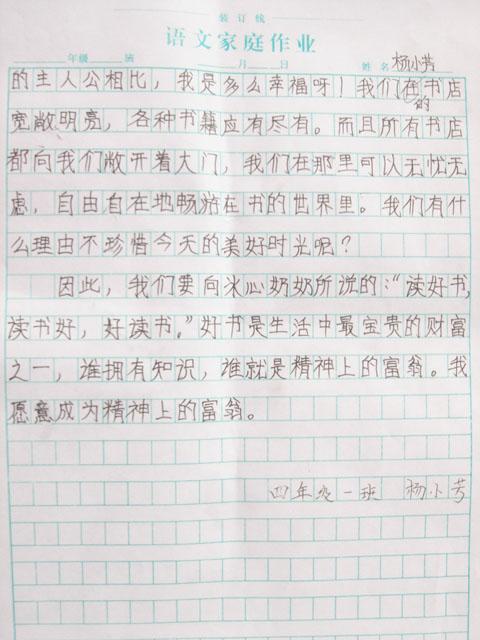 装订线
语文家庭作业
年级 班 月 日 姓名 杨小芳
的主人公相比，我是多么幸福呀！我们在书店
的
宽敞明亮，各种书籍应有尽有。而且所有书店
都向我们敞开着大门，我们在那里可以无忧无
虑，自由自在地畅游在书的世界里。我们有什
么理由不珍惜今天的美好时光呢？
因此，我们要向冰心奶奶所说的：“读好书，
读书好，好读书。”好书是生活中最宝贵的财富
之一，谁拥有知识，谁就是精神上的富翁。我
愿意成为精神上的富翁。
四年级一班 杨小芳